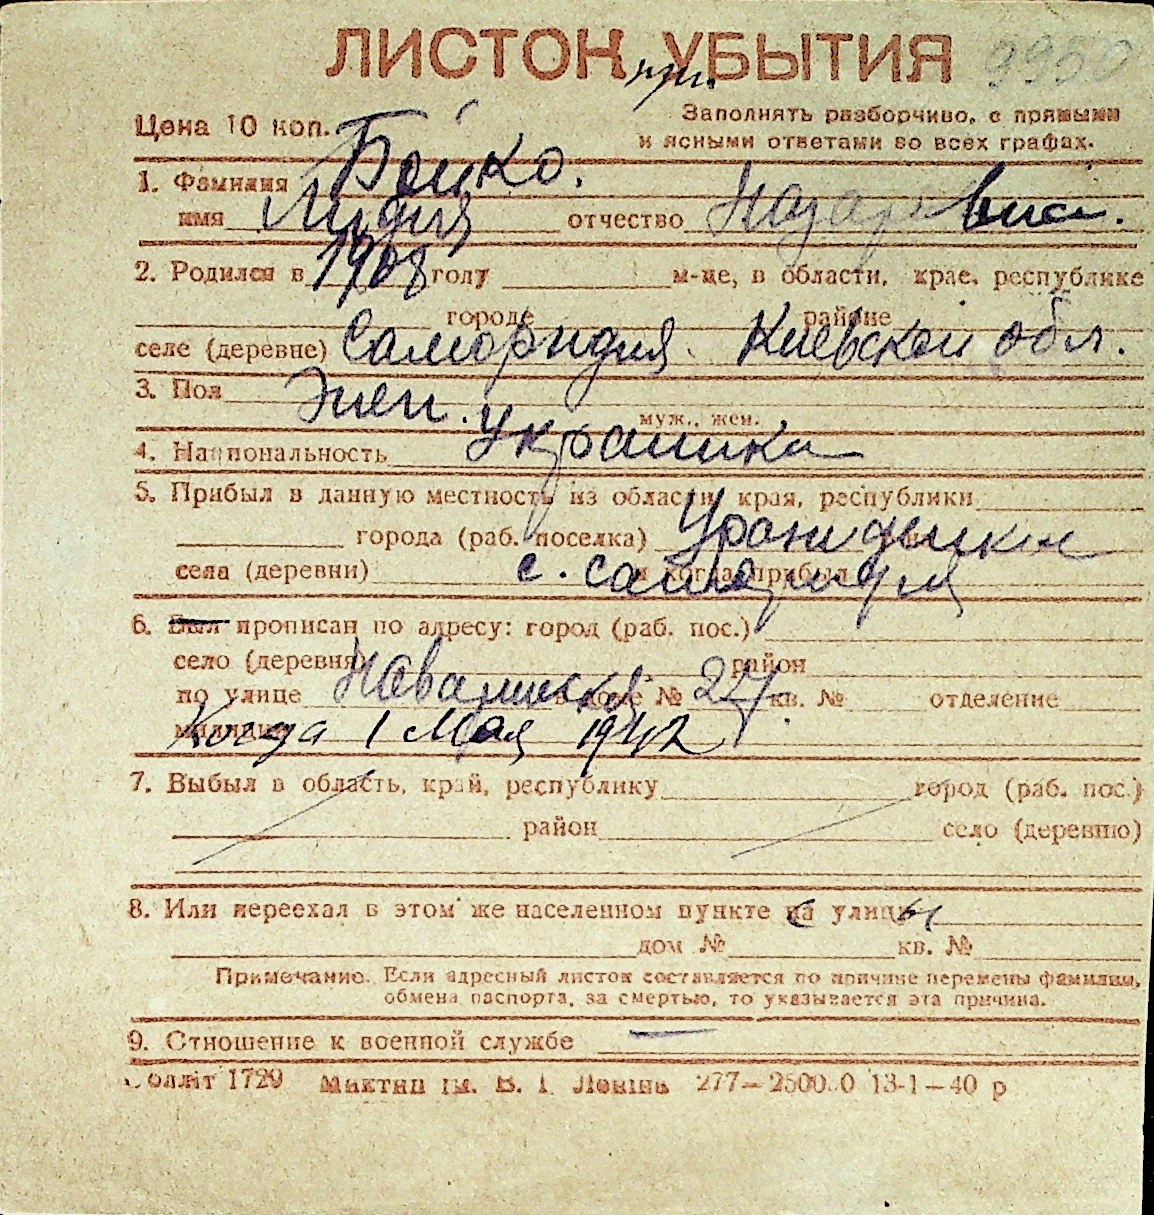 ЛИСТОК УБЫТИЯ 9950
при.
Цена 10 коп. Заполнять разборчиво, с прямыми
и ясными ответами во всех графах.
1. Фамилия Бойко.
имя Лидия отчество
2. Родился в 1908 году м-це, в области, крае, республике
городе районе
селе (деревне) Киевской обл.
3. Пол Жен. муж., жен.
4. Национальность Украинка
5. Прибыл в данную местность из области, края, республики
города (раб. поселка)
села (деревни) с. и когда прибыл
6. Был прописан по адресу: город (раб. пос.)
село (деревня) район
по улице в доме № 27 кв. № отделение
милиции Когда 1 Мая 1942
7. Выбыл в область, край, республику город (раб. пос.)
район село (деревню)
8. Или переехал в этом же населенном пункте на улицу
дом № кв. №
Примечание. Если адресный листок составляется по причине перемены фамилии,
обмена паспорта, за смертью, то указывается эта причина.
9. Отношение к военной службе —
1729 ім. В. І. Леніна 13-1—40 р